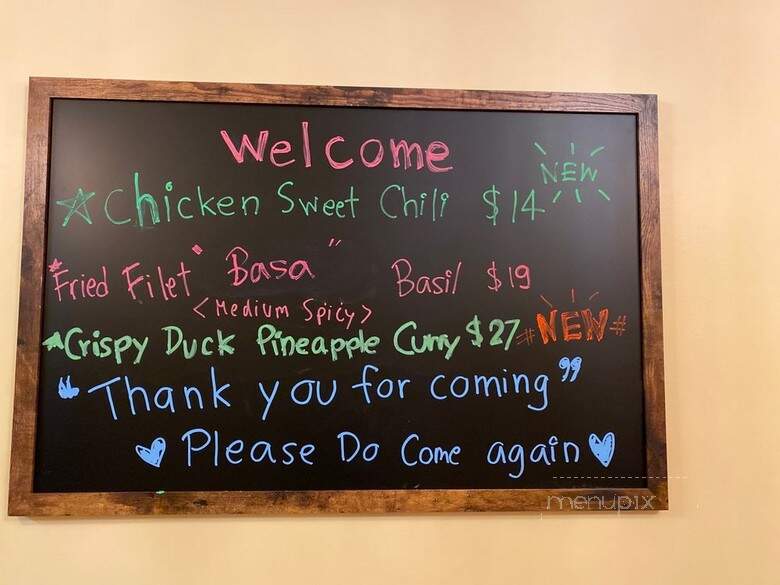 Welcome
☆ Chicken Sweet Chili $14 NEW
*Fried Filet "Basa" Basil $19
<Medium Spicy>
★Crispy Duck Pineapple Curry $27 #NEW#
"Thank you for coming"
♥ Please Do Come again ♥
menupix